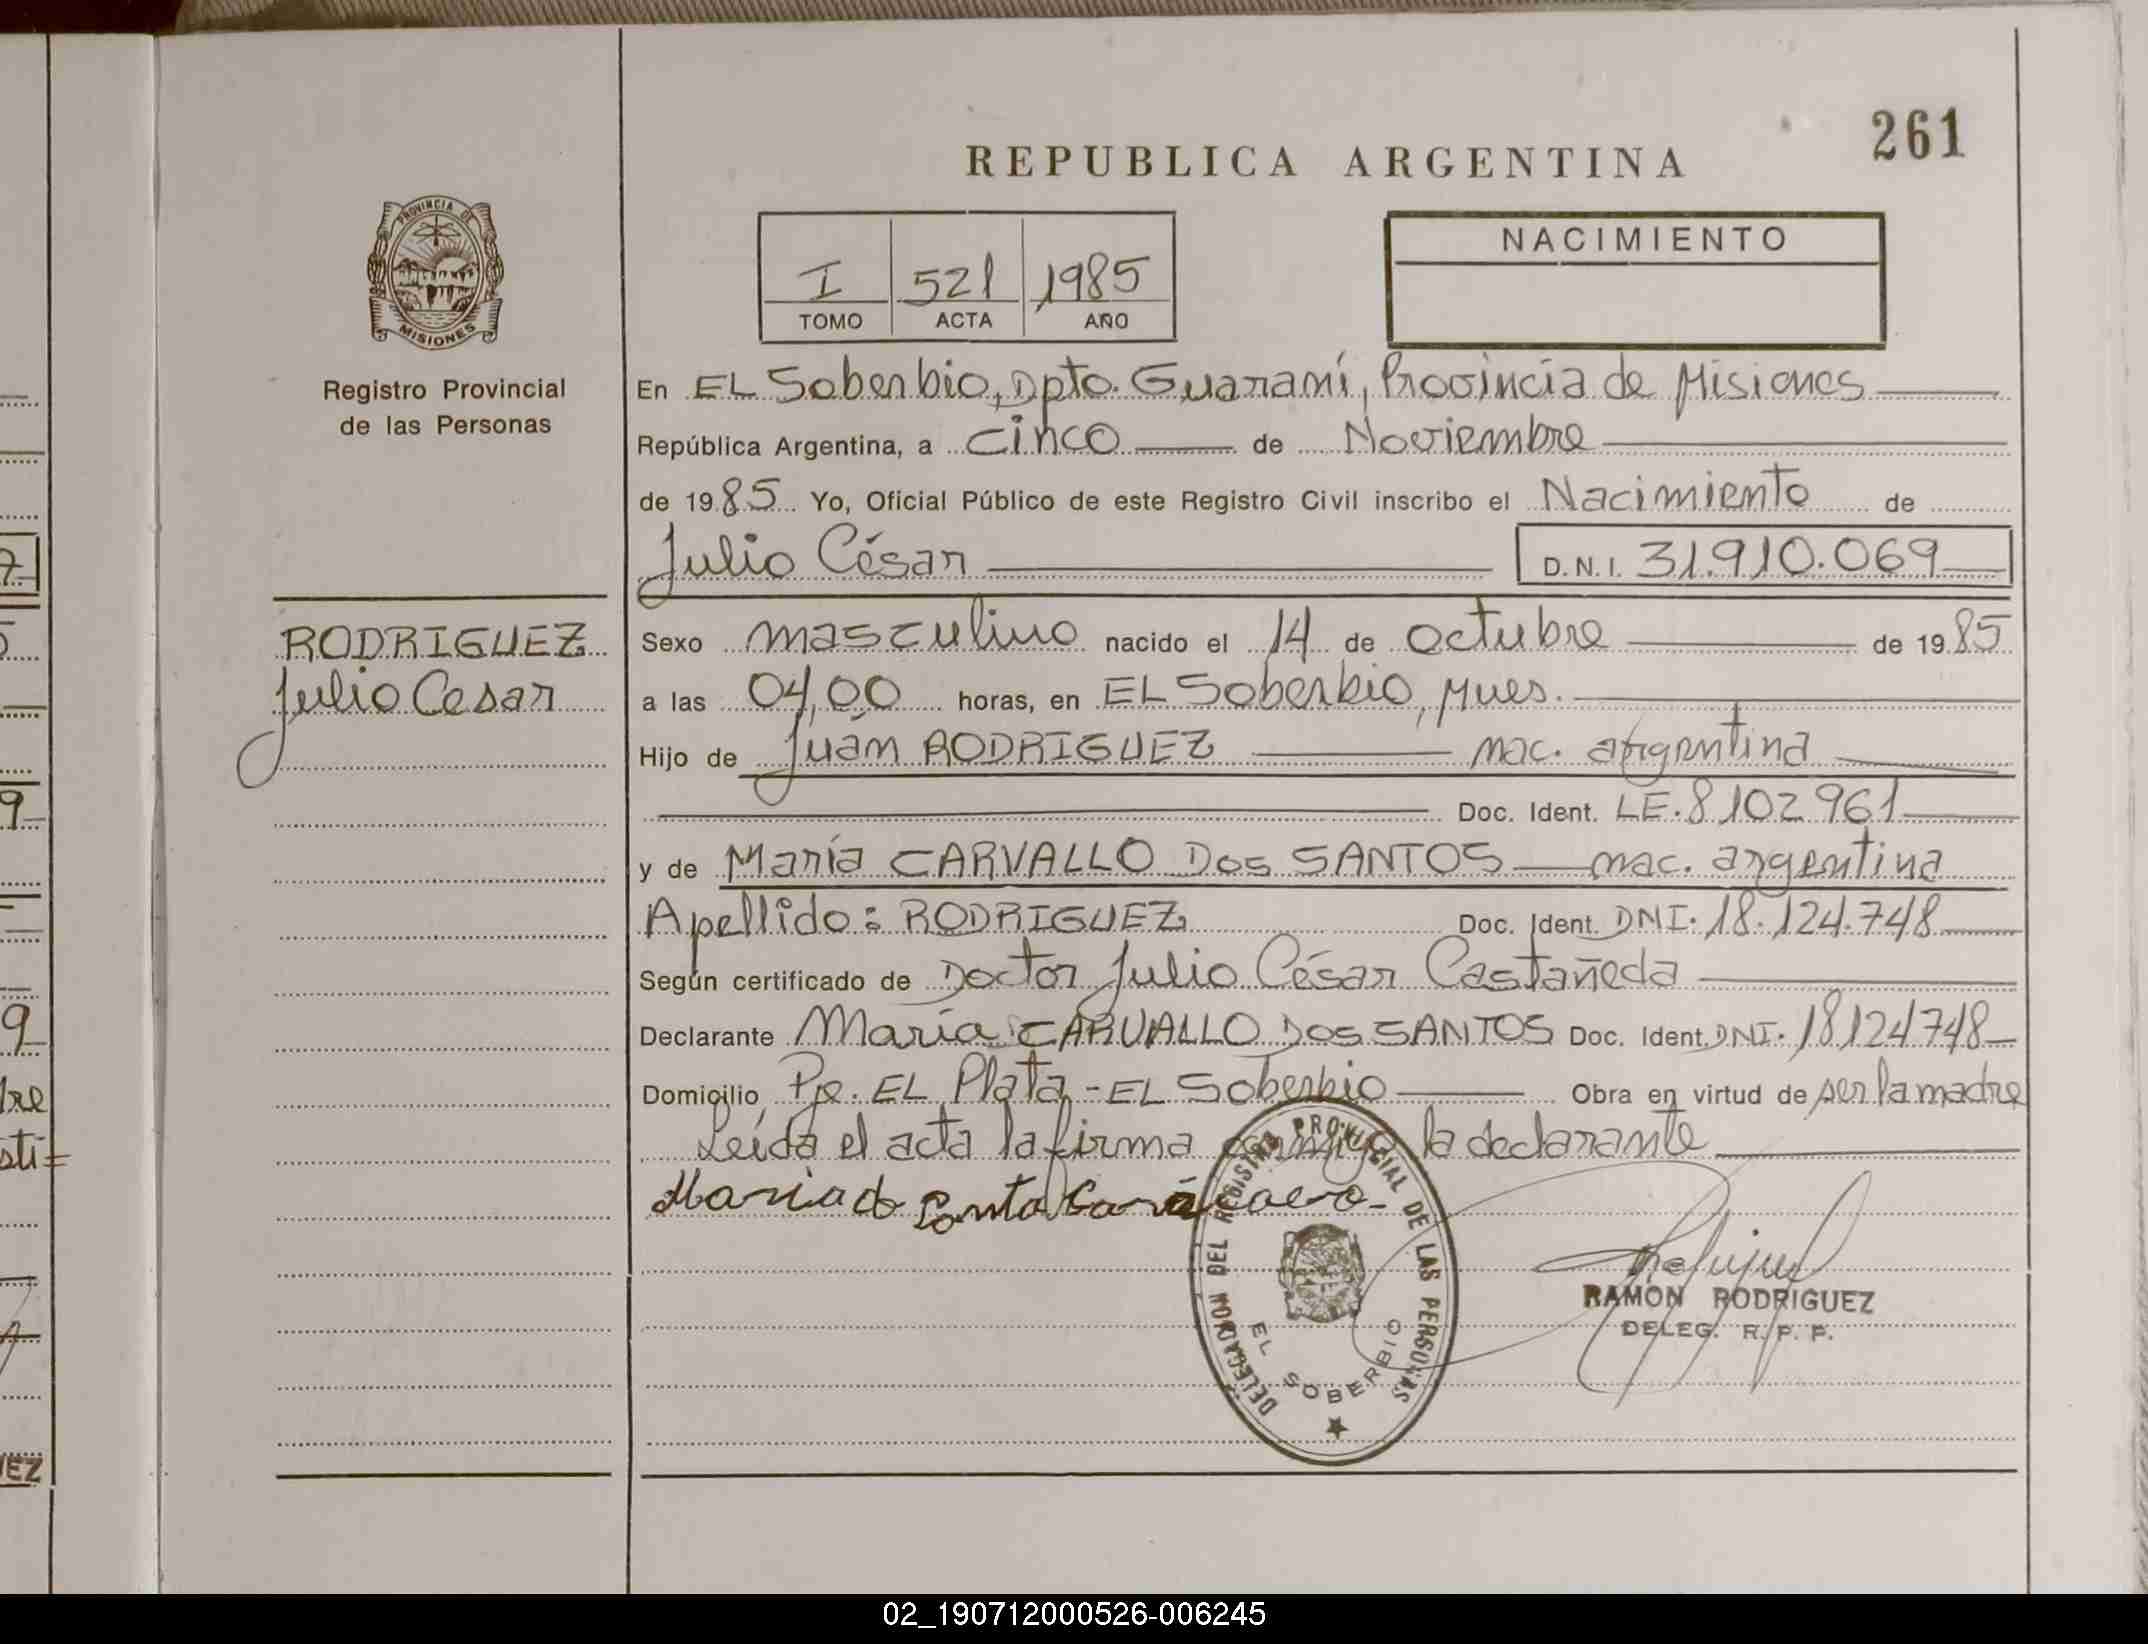 261
REPUBLICA ARGENTINA
PROVINCIA DE
MISIONES
Registro Provincial
de las Personas
I 521 1985
TOMO ACTA AÑO
NACIMIENTO
En EL Soberbio, Dpto. Guaraní, Provincia de Misiones
República Argentina, a cinco de Noviembre
de 1985 Yo, Oficial Público de este Registro Civil inscribo el Nacimiento de
Julio César D.N.I. 31.910.069
RODRIGUEZ
Julio Cesar
Sexo masculino nacido el 14 de octubre de 1985
a las 04,00 horas, en EL Soberbio, Mnes.
Hijo de Juan RODRIGUEZ nac. argentina
Doc. Ident. LE. 8102961
y de María CARVALLO Dos SANTOS nac. argentina
Apellido: RODRIGUEZ Doc. Ident. DNI. 18.124.748
Según certificado de Doctor Julio César Castañeda
Declarante María CARVALLO Dos SANTOS Doc. Ident. DNI. 18124748
Domicilio Pje. EL Plata - EL Soberbio Obra en virtud de ser la madre
Leída el acta la firma conmigo la declarante
Maria do
DELEGACION DEL REGISTRO PROVINCIAL DE LAS PERSONAS
EL SOBERBIO
RAMON RODRIGUEZ
DELEG. R. P. P.
7
9
9
EZ
02_190712000526-006245